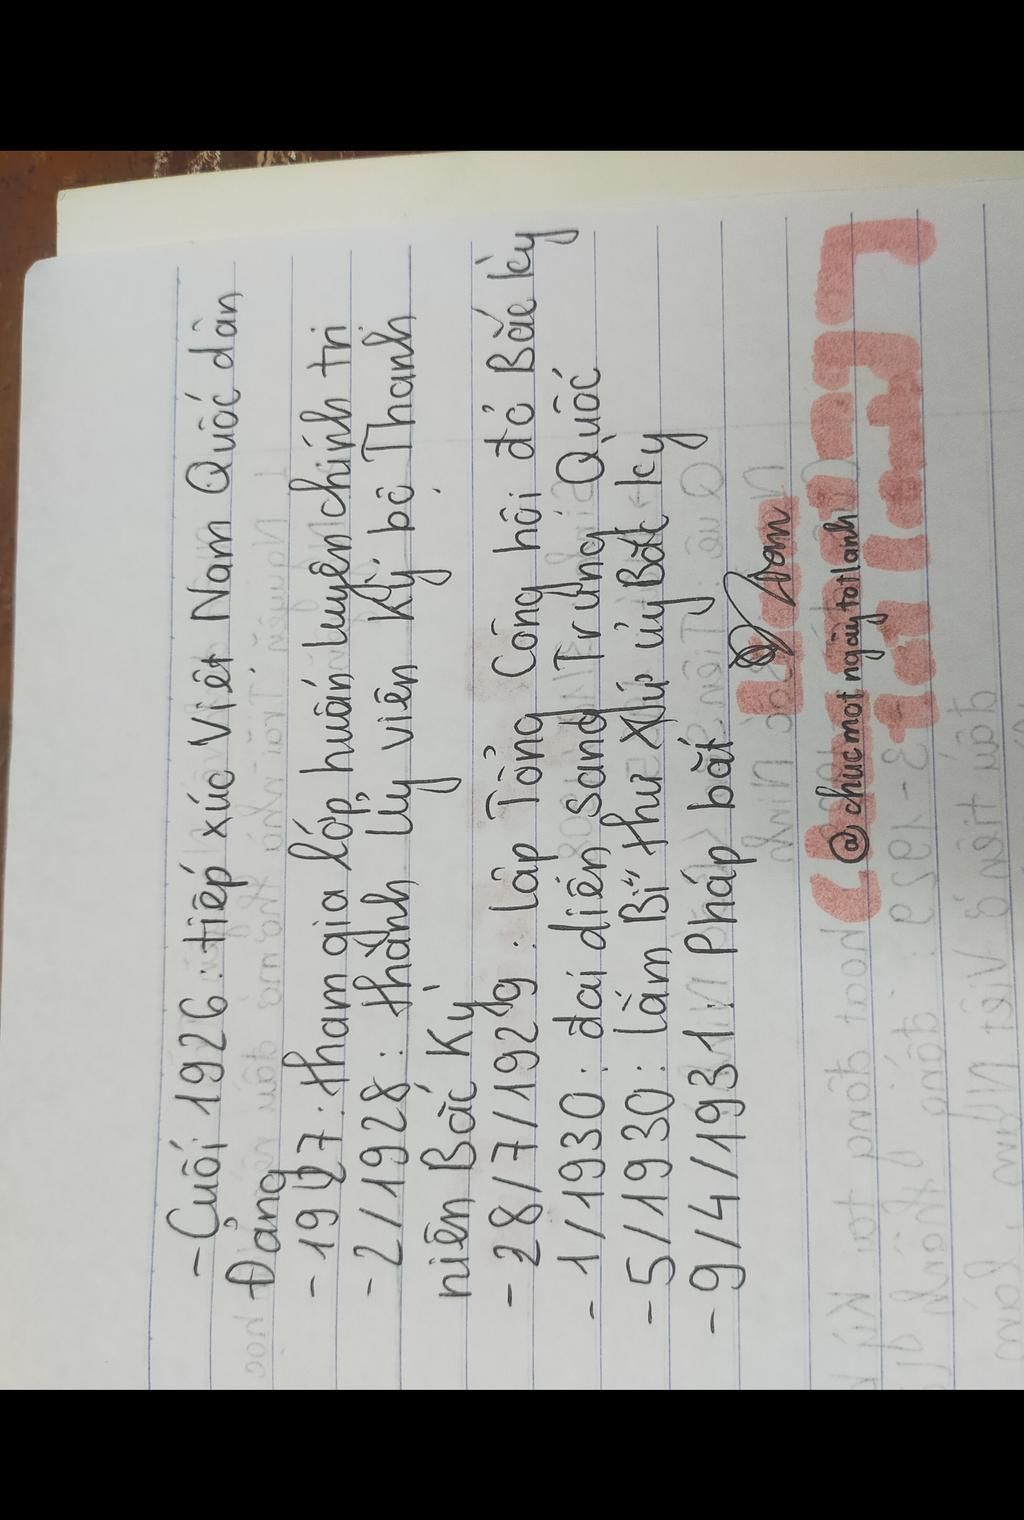 - Cuối 1926: tiếp xúc Việt Nam Quốc dân
Đảng
- 1927: tham gia lớp huấn luyện chính trị
- 2/1928: thành Uỷ viên Kỳ bộ Thanh
niên Bắc Kỳ
- 28/7/1929: lập Tổng Công hội đỏ Bắc kỳ
- 1/1930: đại diện sang Trung Quốc
- 5/1930: làm Bí thư Xứ uỷ Bắc kỳ
- 9/4/1931: Pháp bắt
@chucmotngaytotlanh